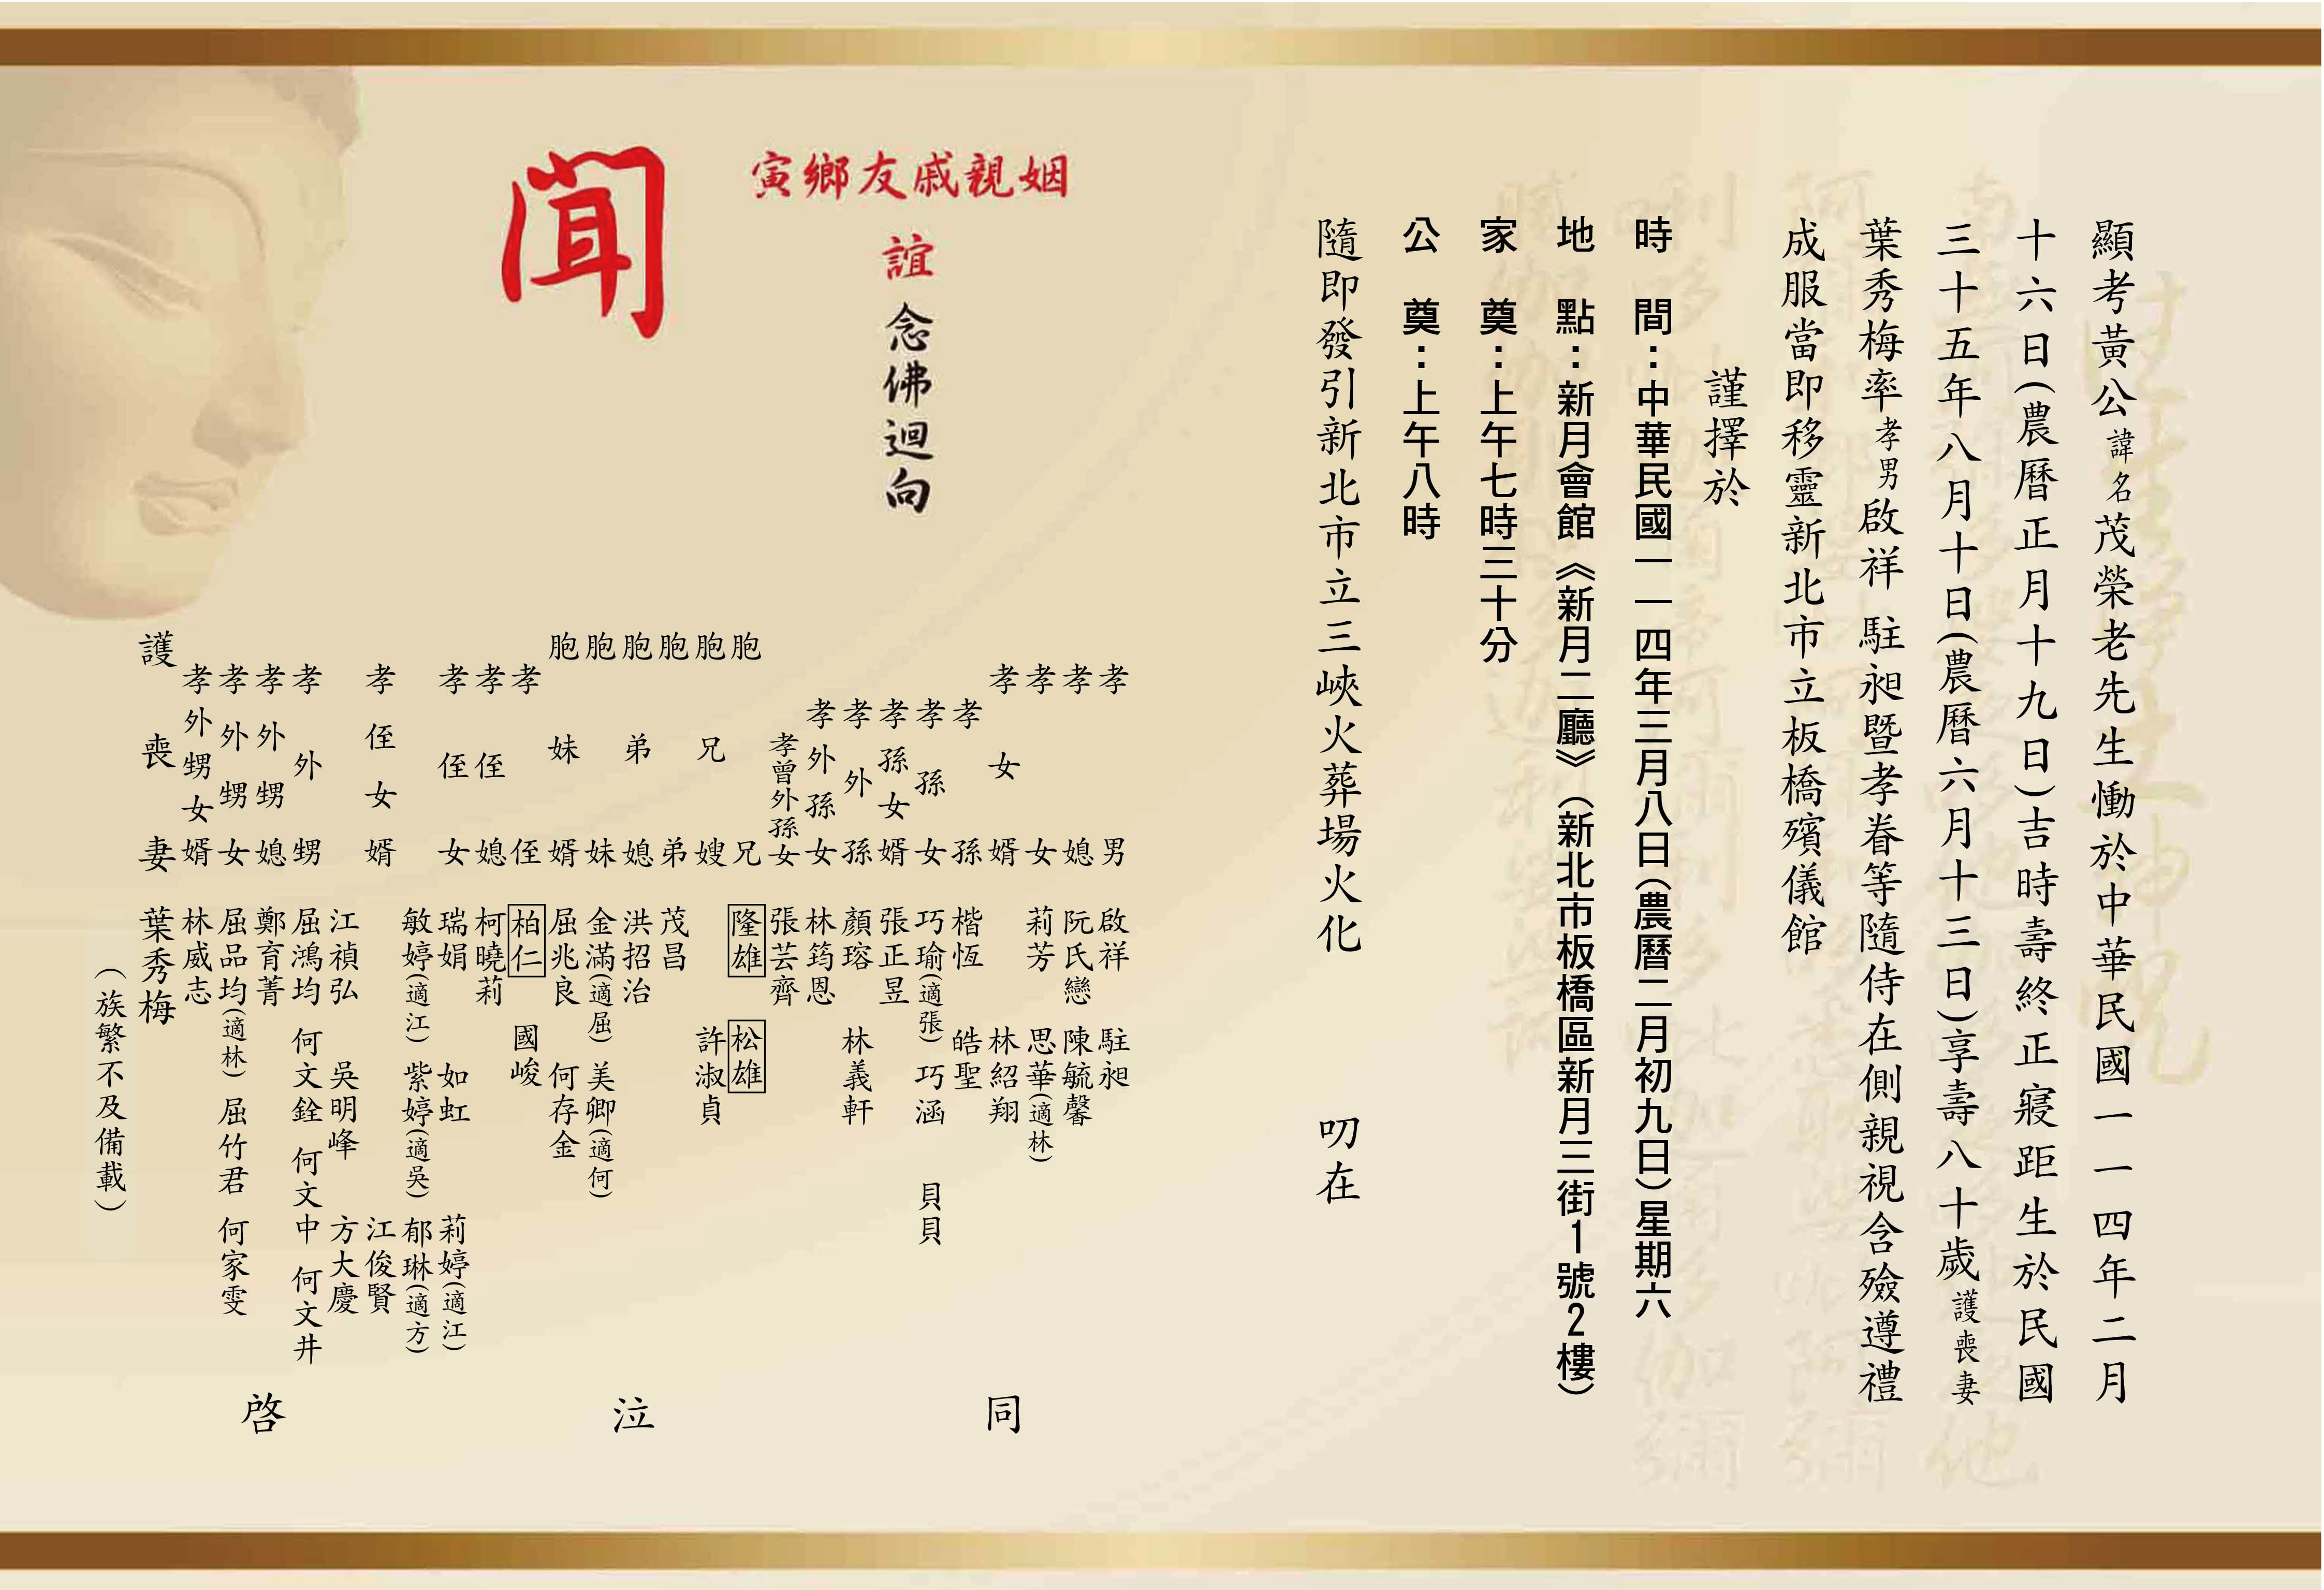 顯考黃公諱名茂榮老先生慟於中華民國一一四年二月
十六日(農曆正月十九日)吉時壽終正寢距生於民國
三十五年八月十日(農曆六月十三日)享壽八十歲護喪妻
葉秀梅率孝男啟祥 駐昶暨孝眷等隨侍在側親視含殮遵禮
成服當即移靈新北市立板橋殯儀館
謹擇於
時 間：中華民國一一四年三月八日(農曆二月初九日)星期六
地 點：新月會館《新月二廳》(新北市板橋區新月三街1號2樓)
家 奠：上午七時三十分
公 奠：上午八時
隨即發引新北市立三峽火葬場火化 叨在
姻親戚友鄉寅
誼 念佛迴向
聞
孝男 啟祥 駐昶
孝媳 阮氏戀 陳毓馨
孝女 莉芳 思華(適林)
孝女婿 林紹翔
孝孫 楷恆 皓聖
孝孫女 巧瑜(適張) 巧涵 貝貝
孝孫女婿 張正昱
孝外孫 顏瑢 林義軒
孝外孫女 林筠恩
孝曾外孫女 張芸齊
胞兄 隆雄 松雄
胞兄嫂 許淑貞
胞弟 茂昌
胞弟媳 洪招治
胞妹 金滿(適屈) 美卿(適何)
胞妹婿 屈兆良 何存金
孝侄 柏仁 國峻
孝侄媳 柯曉莉
孝侄女 瑞娟 如虹 莉婷(適江)
敏婷(適江) 紫婷(適吳) 郁琳(適方)
孝侄女婿 江俊賢
江禎弘 吳明峰 方大慶
孝外甥 屈鴻均 何文銓 何文中 何文井
孝外甥媳 鄭育菁
孝外甥女 屈品均(適林) 屈竹君 何家雯
孝外甥女婿 林威志
護喪妻 葉秀梅
(族繁不及備載)
同 泣 啓